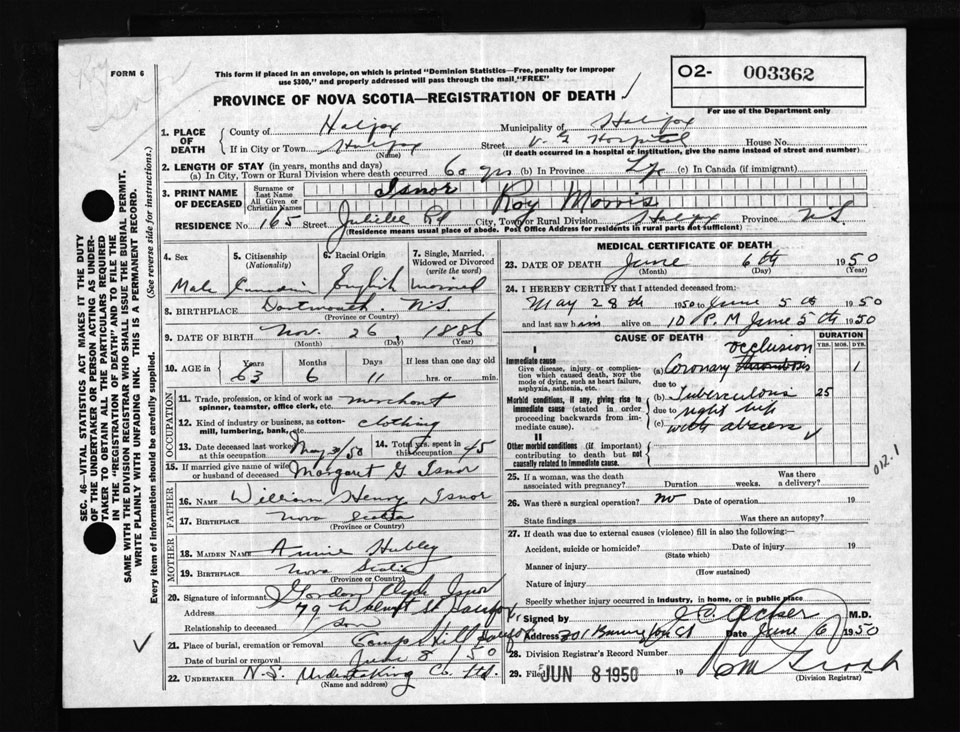 FORM 6
This form if placed in an envelope, on which is printed "Dominion Statistics—Free, penalty for improper
use $300," and properly addressed will pass through the mail, "FREE"
O2- 003362
For use of the Department only
PROVINCE OF NOVA SCOTIA—REGISTRATION OF DEATH
1. PLACE OF DEATH
County of Halifax Municipality of Halifax
If in City or Town Halifax (Name) Street V. G Hospital House No.
(If death occurred in a hospital or institution, give the name instead of street and number)
2. LENGTH OF STAY (in years, months and days)
(a) In City, Town or Rural Division where death occurred 60 yrs (b) In Province Life (c) In Canada (if immigrant)
3. PRINT NAME OF DECEASED
Surname or Last Name Isnor
All Given or Christian Names Roy Morris
RESIDENCE No. 165 Street Jubilee Rd City, Town or Rural Division Halifax Province N.S.
(Residence means usual place of abode. Post Office Address for residents in rural parts not sufficient)
4. Sex
5. Citizenship (Nationality)
6. Racial Origin
7. Single, Married, Widowed or Divorced (write the word)
Male Canadian English married
8. BIRTHPLACE Dartmouth N.S.
(Province or Country)
9. DATE OF BIRTH Nov. 26 1886
(Month) (Day) (Year)
10. AGE in Years Months Days If less than one day old
63 6 11 hrs. or min.
OCCUPATION
11. Trade, profession, or kind of work as spinner, teamster, office clerk, etc. merchant
12. Kind of industry or business, as cotton-mill, lumbering, bank, etc. clothing
13. Date deceased last worked at this occupation May 3/50
14. Total yrs. spent in this occupation 45
15. If married give name of wife or husband of deceased Margaret G Isnor
FATHER
16. NAME William Henry Isnor
17. BIRTHPLACE Nova Scotia
(Province or Country)
MOTHER
18. MAIDEN NAME Annie Hubley
19. BIRTHPLACE Nova Scotia
(Province or Country)
20. Signature of informant Gordon Clyde Isnor
Address 79 St Halifax
Relationship to deceased son
21. Place of burial, cremation or removal Camp Hill Halifax
Date of burial or removal June 8 / 50
22. UNDERTAKER N.S. Undertaking Co. Ltd.
(Name and address)
MEDICAL CERTIFICATE OF DEATH
23. DATE OF DEATH June 6th 1950
(Month) (Day) (Year)
24. I HEREBY CERTIFY that I attended deceased from:
May 28th 1950 to June 5th 1950
and last saw him alive on 10 P.M June 5th 1950
CAUSE OF DEATH
DURATION
YRS. MOS. DYS.
I
Immediate cause
Give disease, injury or complication which caused death, not the mode of dying, such as heart failure, asphyxia, asthenia, etc.
occlusion
(a) Coronary thrombosis 1
due to
Morbid conditions, if any, giving rise to immediate cause (stated in order proceeding backwards from immediate cause).
(b) Tuberculosis 25
due to right hip
(c) with abscess
II
Other morbid conditions (if important) contributing to death but not causally related to immediate cause.
012.1
25. If a woman, was the death associated with pregnancy? Duration weeks. Was there a delivery?
26. Was there a surgical operation? No Date of operation 19
State findings Was there an autopsy?
27. If death was due to external causes (violence) fill in also the following:
Accident, suicide or homicide? Date of injury 19
(State which)
Manner of injury
(How sustained)
Nature of injury
Specify whether injury occurred in industry, in home, or in public place
Signed by Acker M.D.
Address 301 St Date June 6 1950
28. Division Registrar's Record Number
29. Filed JUN 8 1950 19
(Division Registrar)
SEC. 46—VITAL STATISTICS ACT MAKES IT THE DUTY
OF THE UNDERTAKER OR PERSON ACTING AS UNDER-
TAKER TO OBTAIN ALL THE PARTICULARS REQUIRED
IN THE "REGISTRATION OF DEATH" AND TO FILE THE
SAME WITH THE DIVISION REGISTRAR WHO SHALL ISSUE THE BURIAL PERMIT.
WRITE PLAINLY WITH UNFADING INK. THIS IS A PERMANENT RECORD.
Every item of information should be carefully supplied. (See reverse side for instructions.)